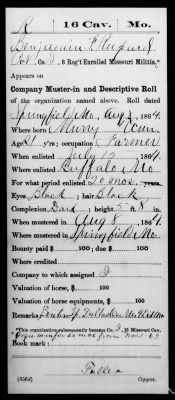 R | 16 Cav. | Mo.
Benjamin F Rippard
Pvt, Co. I, 6 Reg't Enrolled Missouri Militia.*
Appears on
Company Muster-in and Descriptive Roll
of the organization named above. Roll dated
Springfield Mo, Aug 8, 1864.
Where born Murry Tenn
Age 21 y'rs; occupation Farmer
When enlisted July 12, 1864.
Where enlisted Buffalo, Mo
For what period enlisted 20 mos. years.
Eyes Black; hair Black
Complexion Dark; height 5 ft. 8 in.
When mustered in Aug 8, 1864.
Where mustered in Springfield Mo.
Bounty paid $ 100; due $ 100
Where credited
Company to which assigned I
Valuation of horse, $ 100
Valuation of horse equipments, $ 100
Remarks:
*This organization subsequently became Co. I, 16 Missouri Cav.,
from Nov 1 63
Book mark:
Fuller
(356d) Copyist.